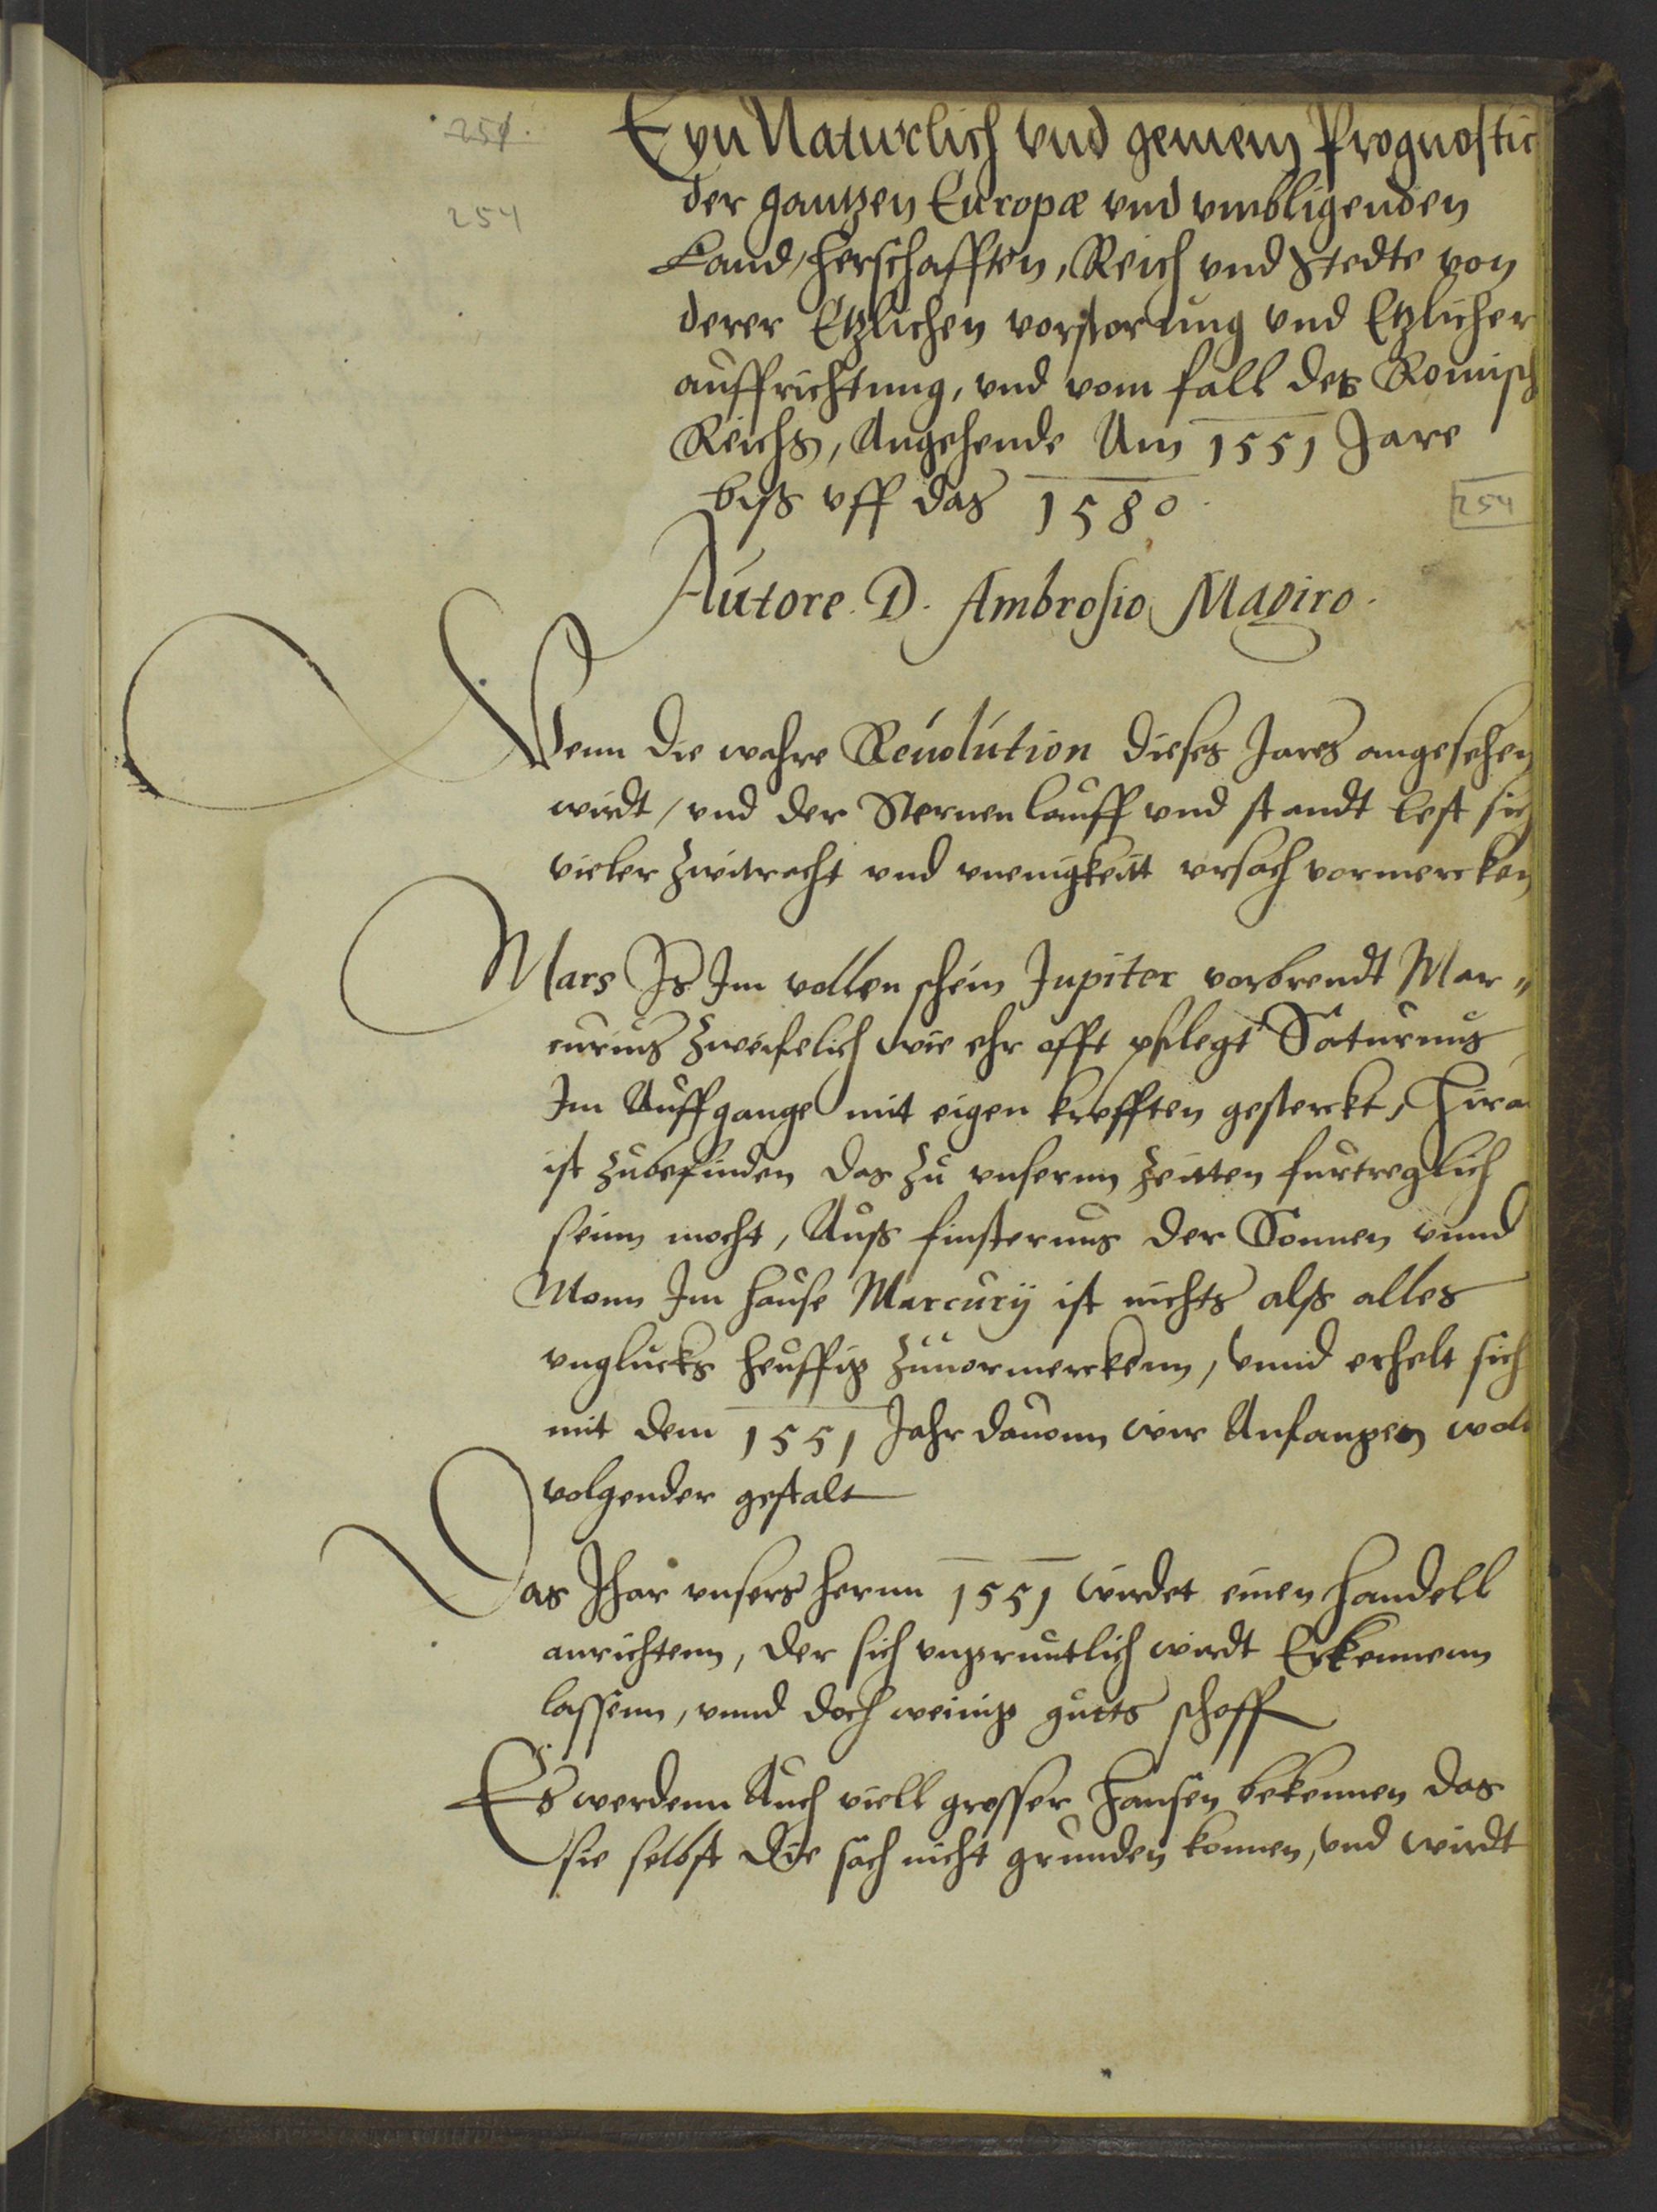 251.
254
Eyn Naturlich vnd gemein Prognostic
der gantzen Europæ vnd vmbligenden
Land, herschafften, Reich vnd Stedte von
derer Etzlichen vorstorung vnd Etzlicher
auffrichtung, vnd vom fall des Romisch
Reichs, Angehende Am 1551 Jare
biß vff das 1580.
254
Autore D. Ambrosio Magiro.
Wenn die wahre Reuolution dieses Jares angesehen
wirdt, vnd der Sternen lauff vnd standt lest sich
vieler zwitracht vnd vneinigkeitt vrsach vormercken
Mars Is Im vollen schein Jupiter vorbrendt Mar„
curius zweifelich wie ehr offt pflegt Saturnus
Im Auffgange mit eigen krefften gesterckt, Hira
ist zubefinden das zu vnsernn Zeitten furtreglich
seinn mocht, Auß finsternus der Sonnen vnnd
Monn Im hause Marcurij ist nichts alß alles
vnglucks heuffig zuuormerckenn, vnnd erhelt sich
mit dem 1551 Jahr dauonn wir Anfangen woll
volgender gestalt
Das Jhar vnsers hernn 1551 wirdet einen handell
anrichtenn, der sich vngruntlich wirdt Erkennenn
lassenn, vnnd doch weinig gutts schaff
Es werdenn Auch viell grosser Hansen bekennen das
sie selbst die sach nicht grunden konnen, vnd wirdt